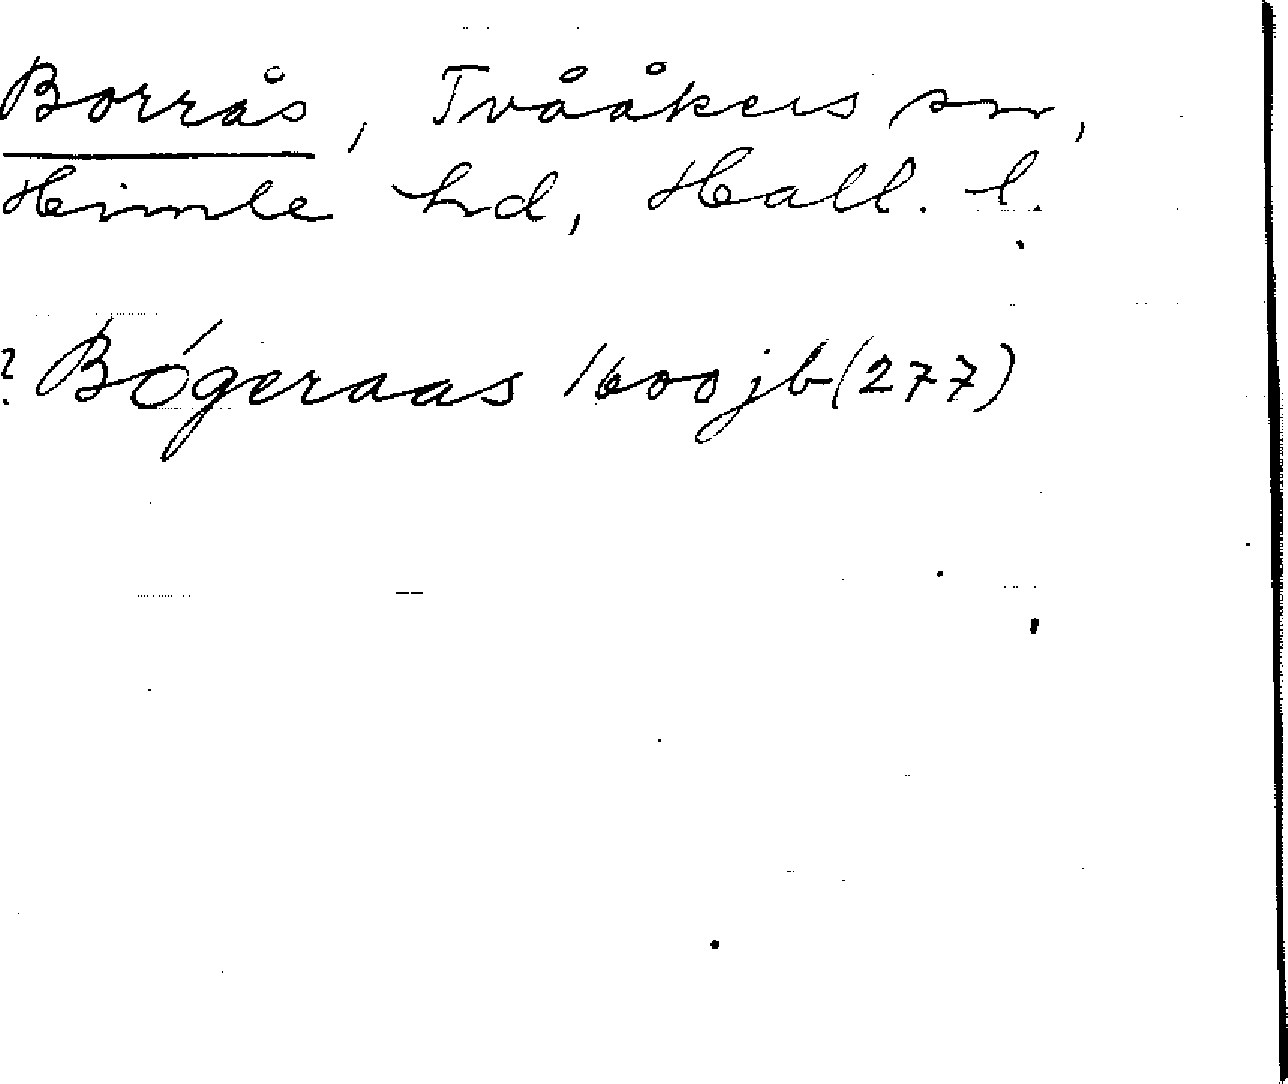 Borrås, Tvååkers sn,
Himle hd, Hall. l.
? Bógeraas 1600 jb (277)